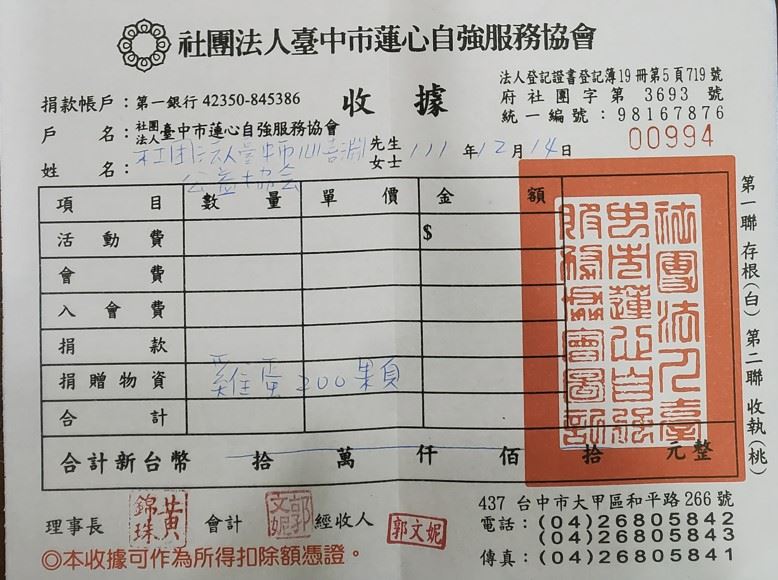 社團法人臺中市蓮心自強服務協會
法人登記證書登記簿19冊第5頁719號
府社團字第3693號
統一編號：98167876
00994
收據
捐款帳戶：第一銀行 42350-845386
戶名：社團法人臺中市蓮心自強服務協會
姓名：社團法人臺中市心喜淵公益協會 先生 女士 111年12月14日
項目 數量 單價 金額
活動費 $
會費
入會費
捐款
捐贈物資 雞蛋 200顆
合計
合計新台幣 拾 萬 仟 佰 拾 元整
社團法人臺中市蓮心自強服務協會圖記
第一聯 存根(白) 第二聯 收執(桃)
理事長 黃錦珠 會計 郭文妮 經收人 郭文妮
437 台中市大甲區和平路266號
電話：(04)26805842
(04)26805843
傳真：(04)26805841
◎本收據可作為所得扣除額憑證。